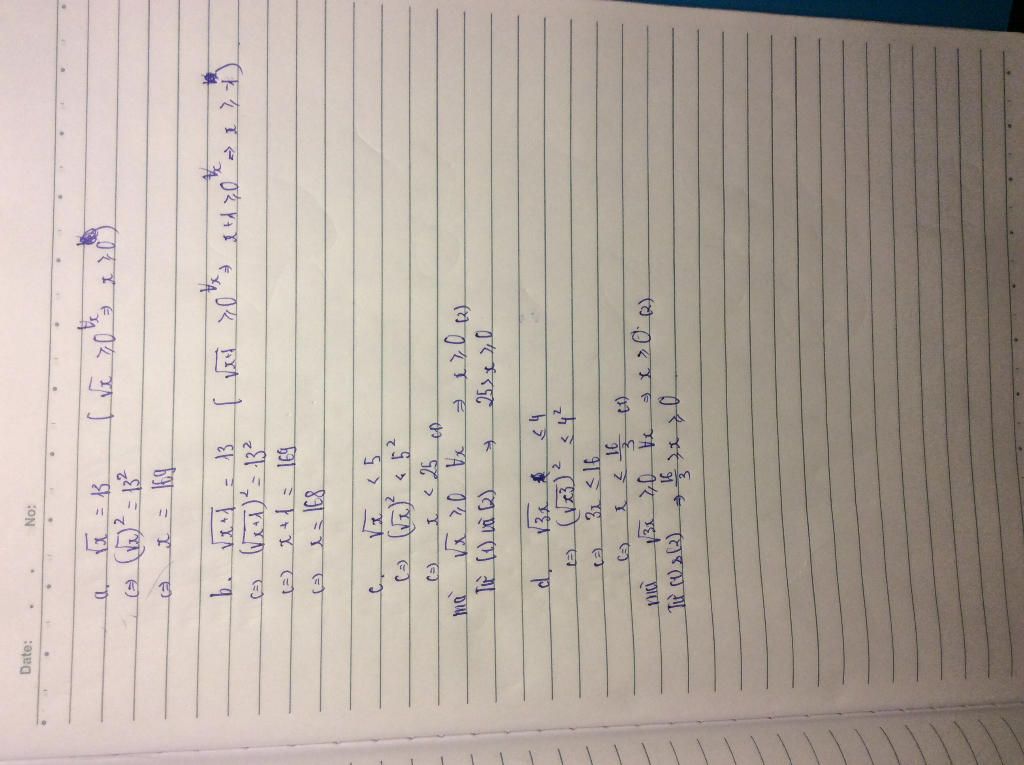 Date: No:
a. √x = 13 ( √x ≥ 0 ∀x ⇒ x ≥ 0 )
⇔ (√x)² = 13²
⇔ x = 169
b. √x+1 = 13 ( √x+1 ≥ 0 ∀x ⇒ x+1 ≥ 0 ∀x ⇒ x ≥ -1 )
⇔ (√x+1)² = 13²
⇔ x+1 = 169
⇔ x = 168
c. √x < 5
⇔ (√x)² < 5²
⇔ x < 25 (1)
mà √x ≥ 0 ∀x ⇒ x ≥ 0 (2)
Từ (1) và (2) ⇒ 25 > x ≥ 0
d. √3x ≤ 4
⇔ (√x3)² ≤ 4²
⇔ 3x ≤ 16
⇔ x ≤ 16/3 (1)
mà √3x ≥ 0 ∀x ⇒ x ≥ 0 (2)
Từ (1) & (2) ⇒ 16/3 ≥ x ≥ 0